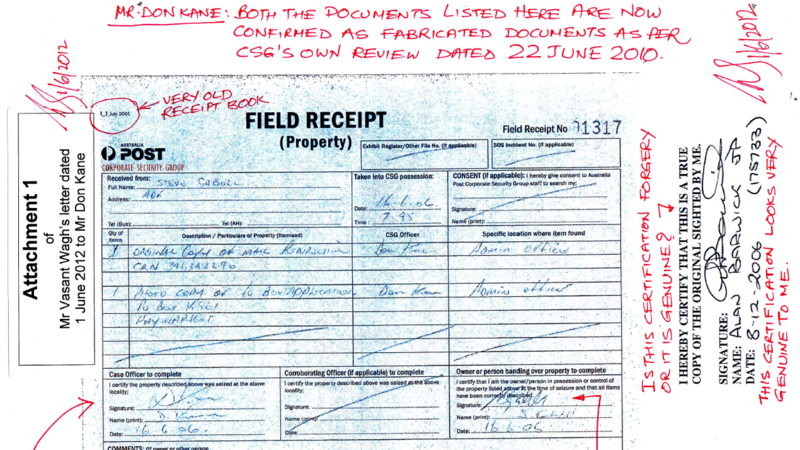 MR. DON KANE: BOTH THE DOCUMENTS LISTED HERE ARE NOW
CONFIRMED AS FABRICATED DOCUMENTS AS PER
CSG'S OWN REVIEW DATED 22 JUNE 2010.
1/6/2012
1/6/2012
Attachment 1
of
Mr Vasant Wagh's letter dated
1 June 2012 to Mr Don Kane
July 2005
VERY OLD
RECEIPT BOOK
FIELD RECEIPT
(Property)
Field Receipt No 91317
AUSTRALIA
POST
CORPORATE SECURITY GROUP
Exhibit Register/Other File No. (if applicable)
SOS Incident No. (if applicable)
Received from:
Full Name: STEVE
Address:
Tel (Bus):
Tel (AH):
Taken into CSG possession:
Date: 16.6.06
Time: 7.45
CONSENT (if applicable): I hereby give consent to Australia
Post Corporate Security Group staff to search my:
Signature:
Name (print):
Qty of
Items
Description / Particulars of Property (Itemised)
CSG Officer
Specific location where item found
1 ORIGINAL COPY OF MAIL REDIRECTION
Don Kane
ADMIN OFFICE
1 PHOTO COPY OF PO BOX APPLICATION
Don Kane
ADMIN OFFICE
PO BOX
HAYMARKET
Case Officer to complete
I certify the property described above was seized at the above
locality;
Signature:
Name (print): D. Kane
Date: 16.6.06.
Corroborating Officer (if applicable) to complete
I certify the property described above was seized at the above
locality;
Signature:
Name (print):
Date:
Owner or person handing over property to complete
I certify that I am the owner/person in possession or control of
the property listed above at the time of seizure and that all items
have been correctly described.
Signature:
Name (print):
Date: 16.6.06
COMMENTS: (If owner or other person
IS THIS CERTIFICATION FORGERY
OR IT IS GENUINE?
I HEREBY CERTIFY THAT THIS IS A TRUE
COPY OF THE ORIGINAL SIGHTED BY ME.
SIGNATURE:
NAME: ALAN BARWICK JP
DATE: 8-12-2006 (115733)
THIS CERTIFICATION LOOKS VERY
GENUINE TO ME.